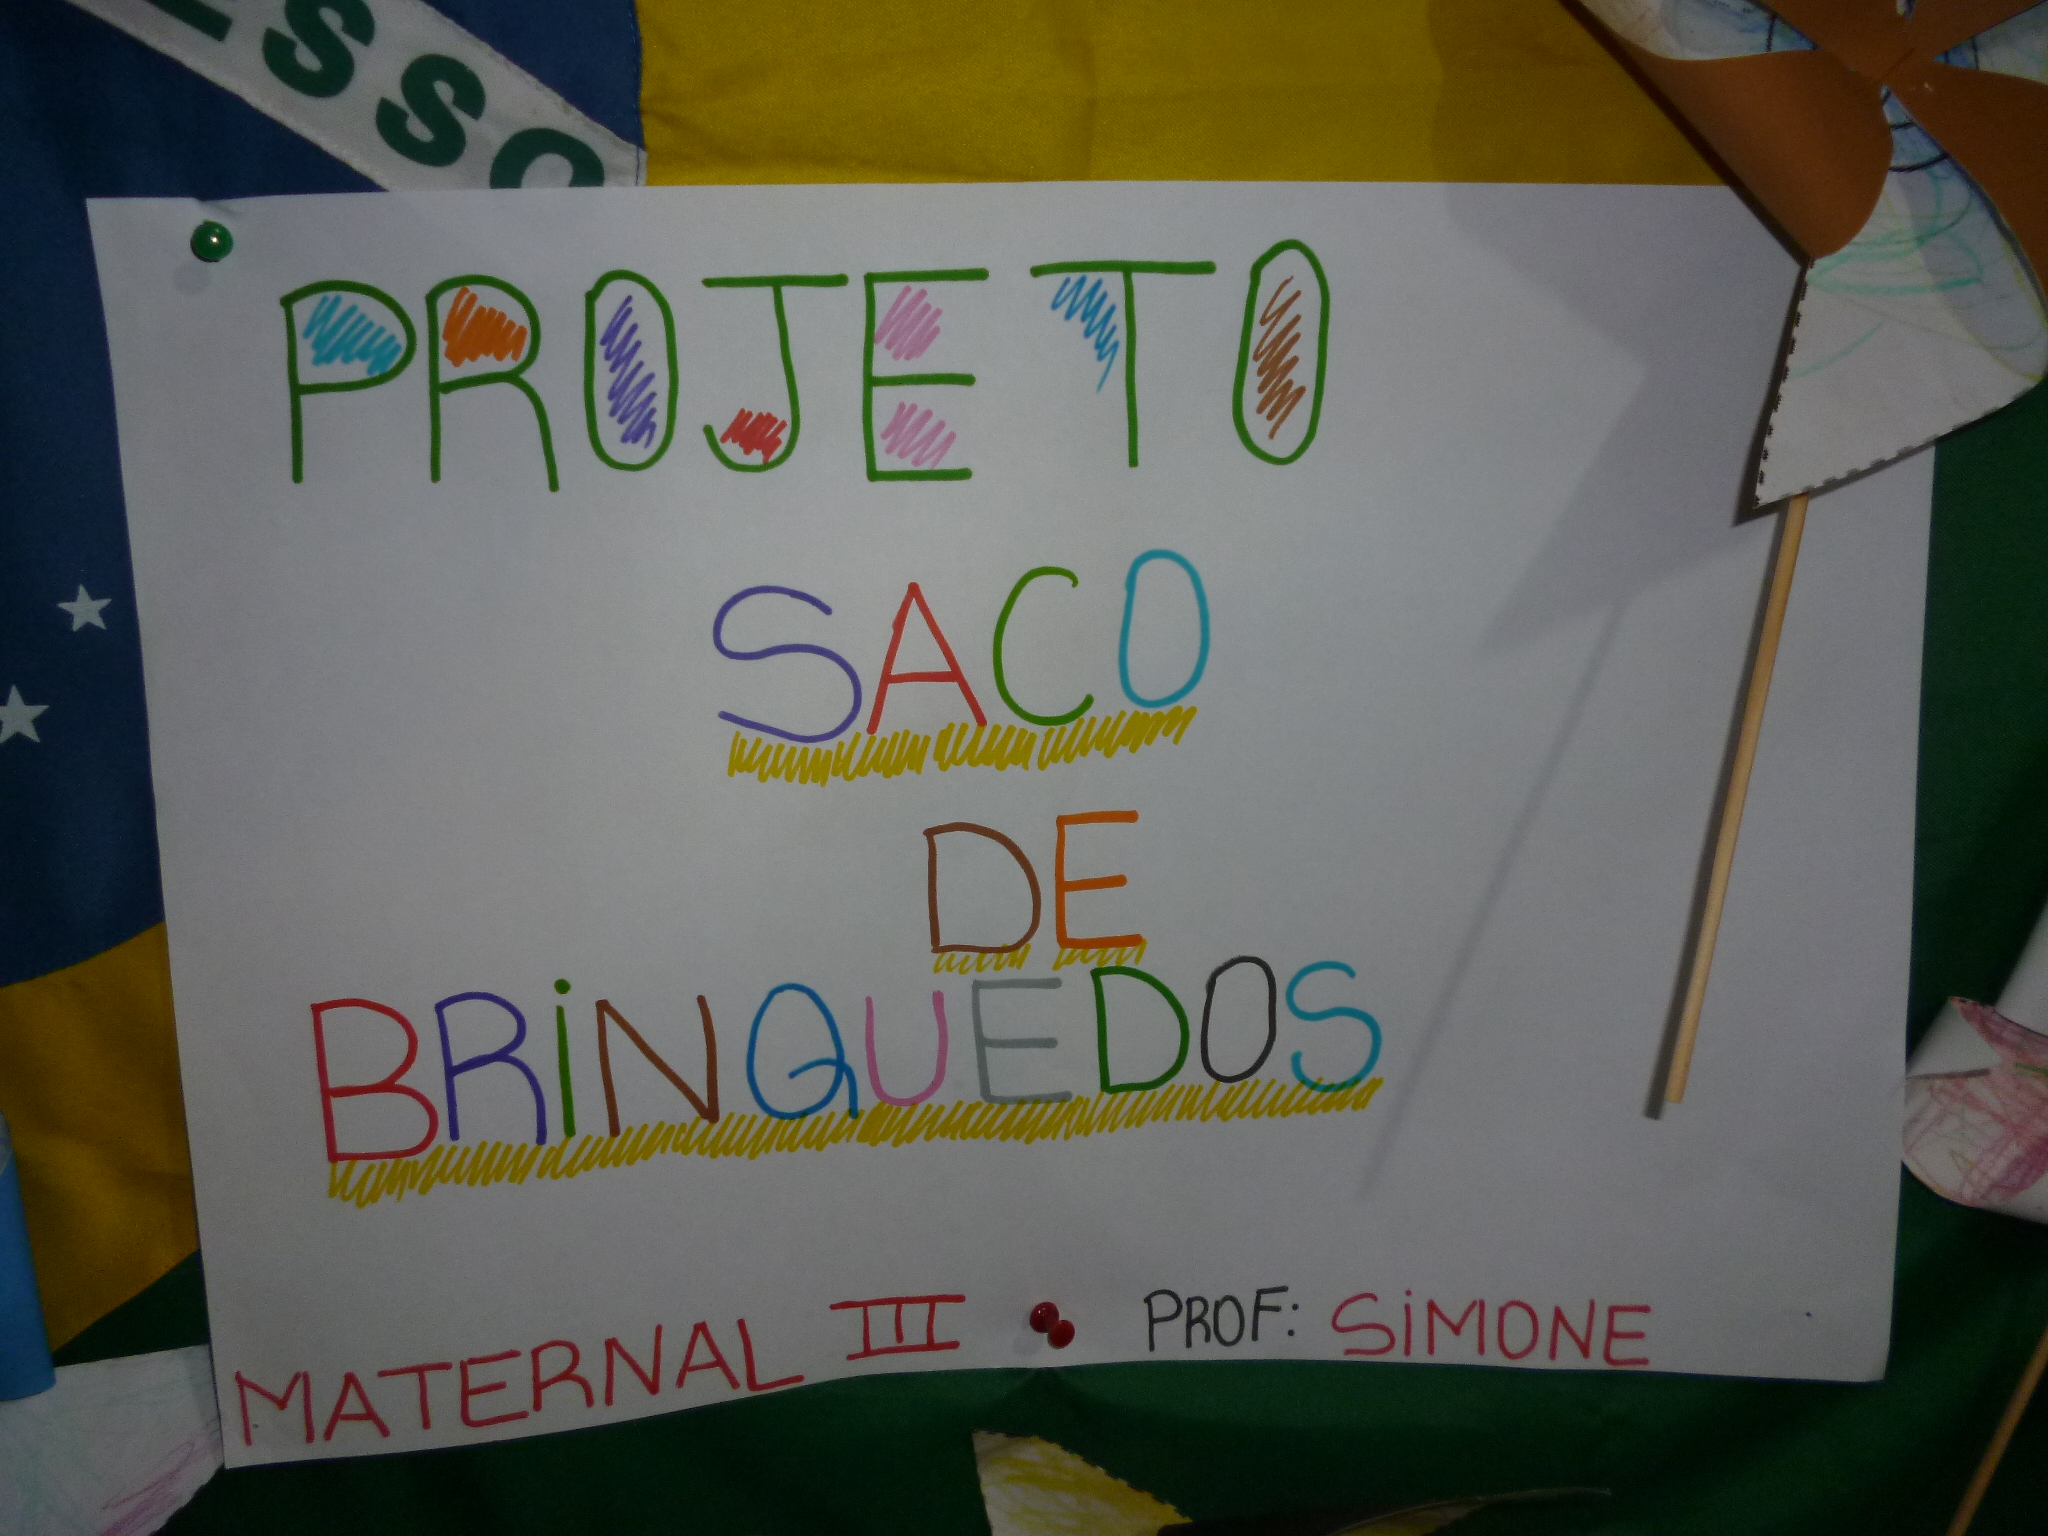 ESSO
PROJETO
SACO
DE
BRINQUEDOS
MATERNAL III PROF: SIMONE